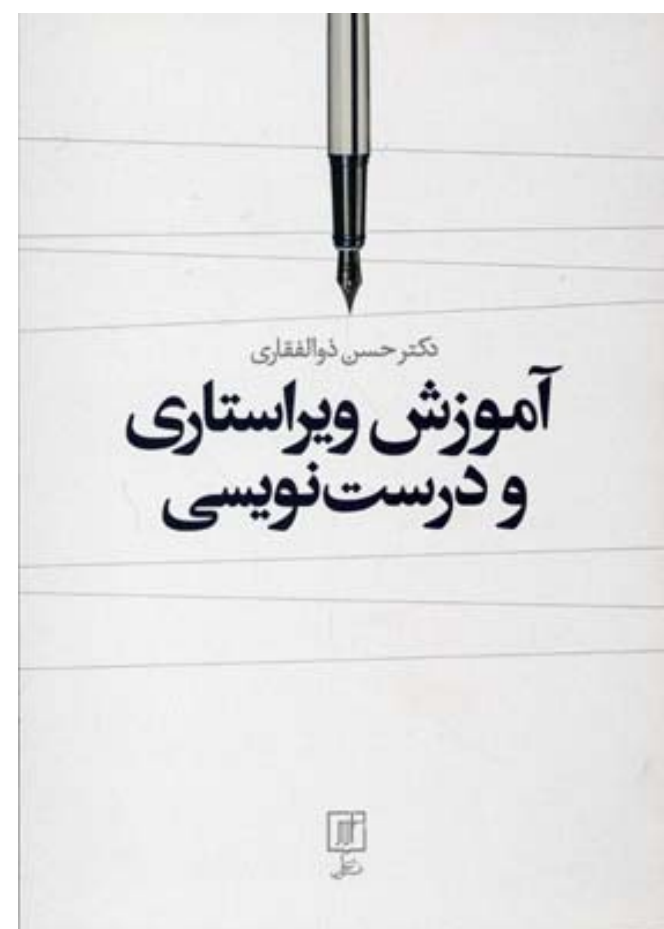 دکتر حسن ذوالفقاری
آموزش ویراستاری
و درست‌نویسی